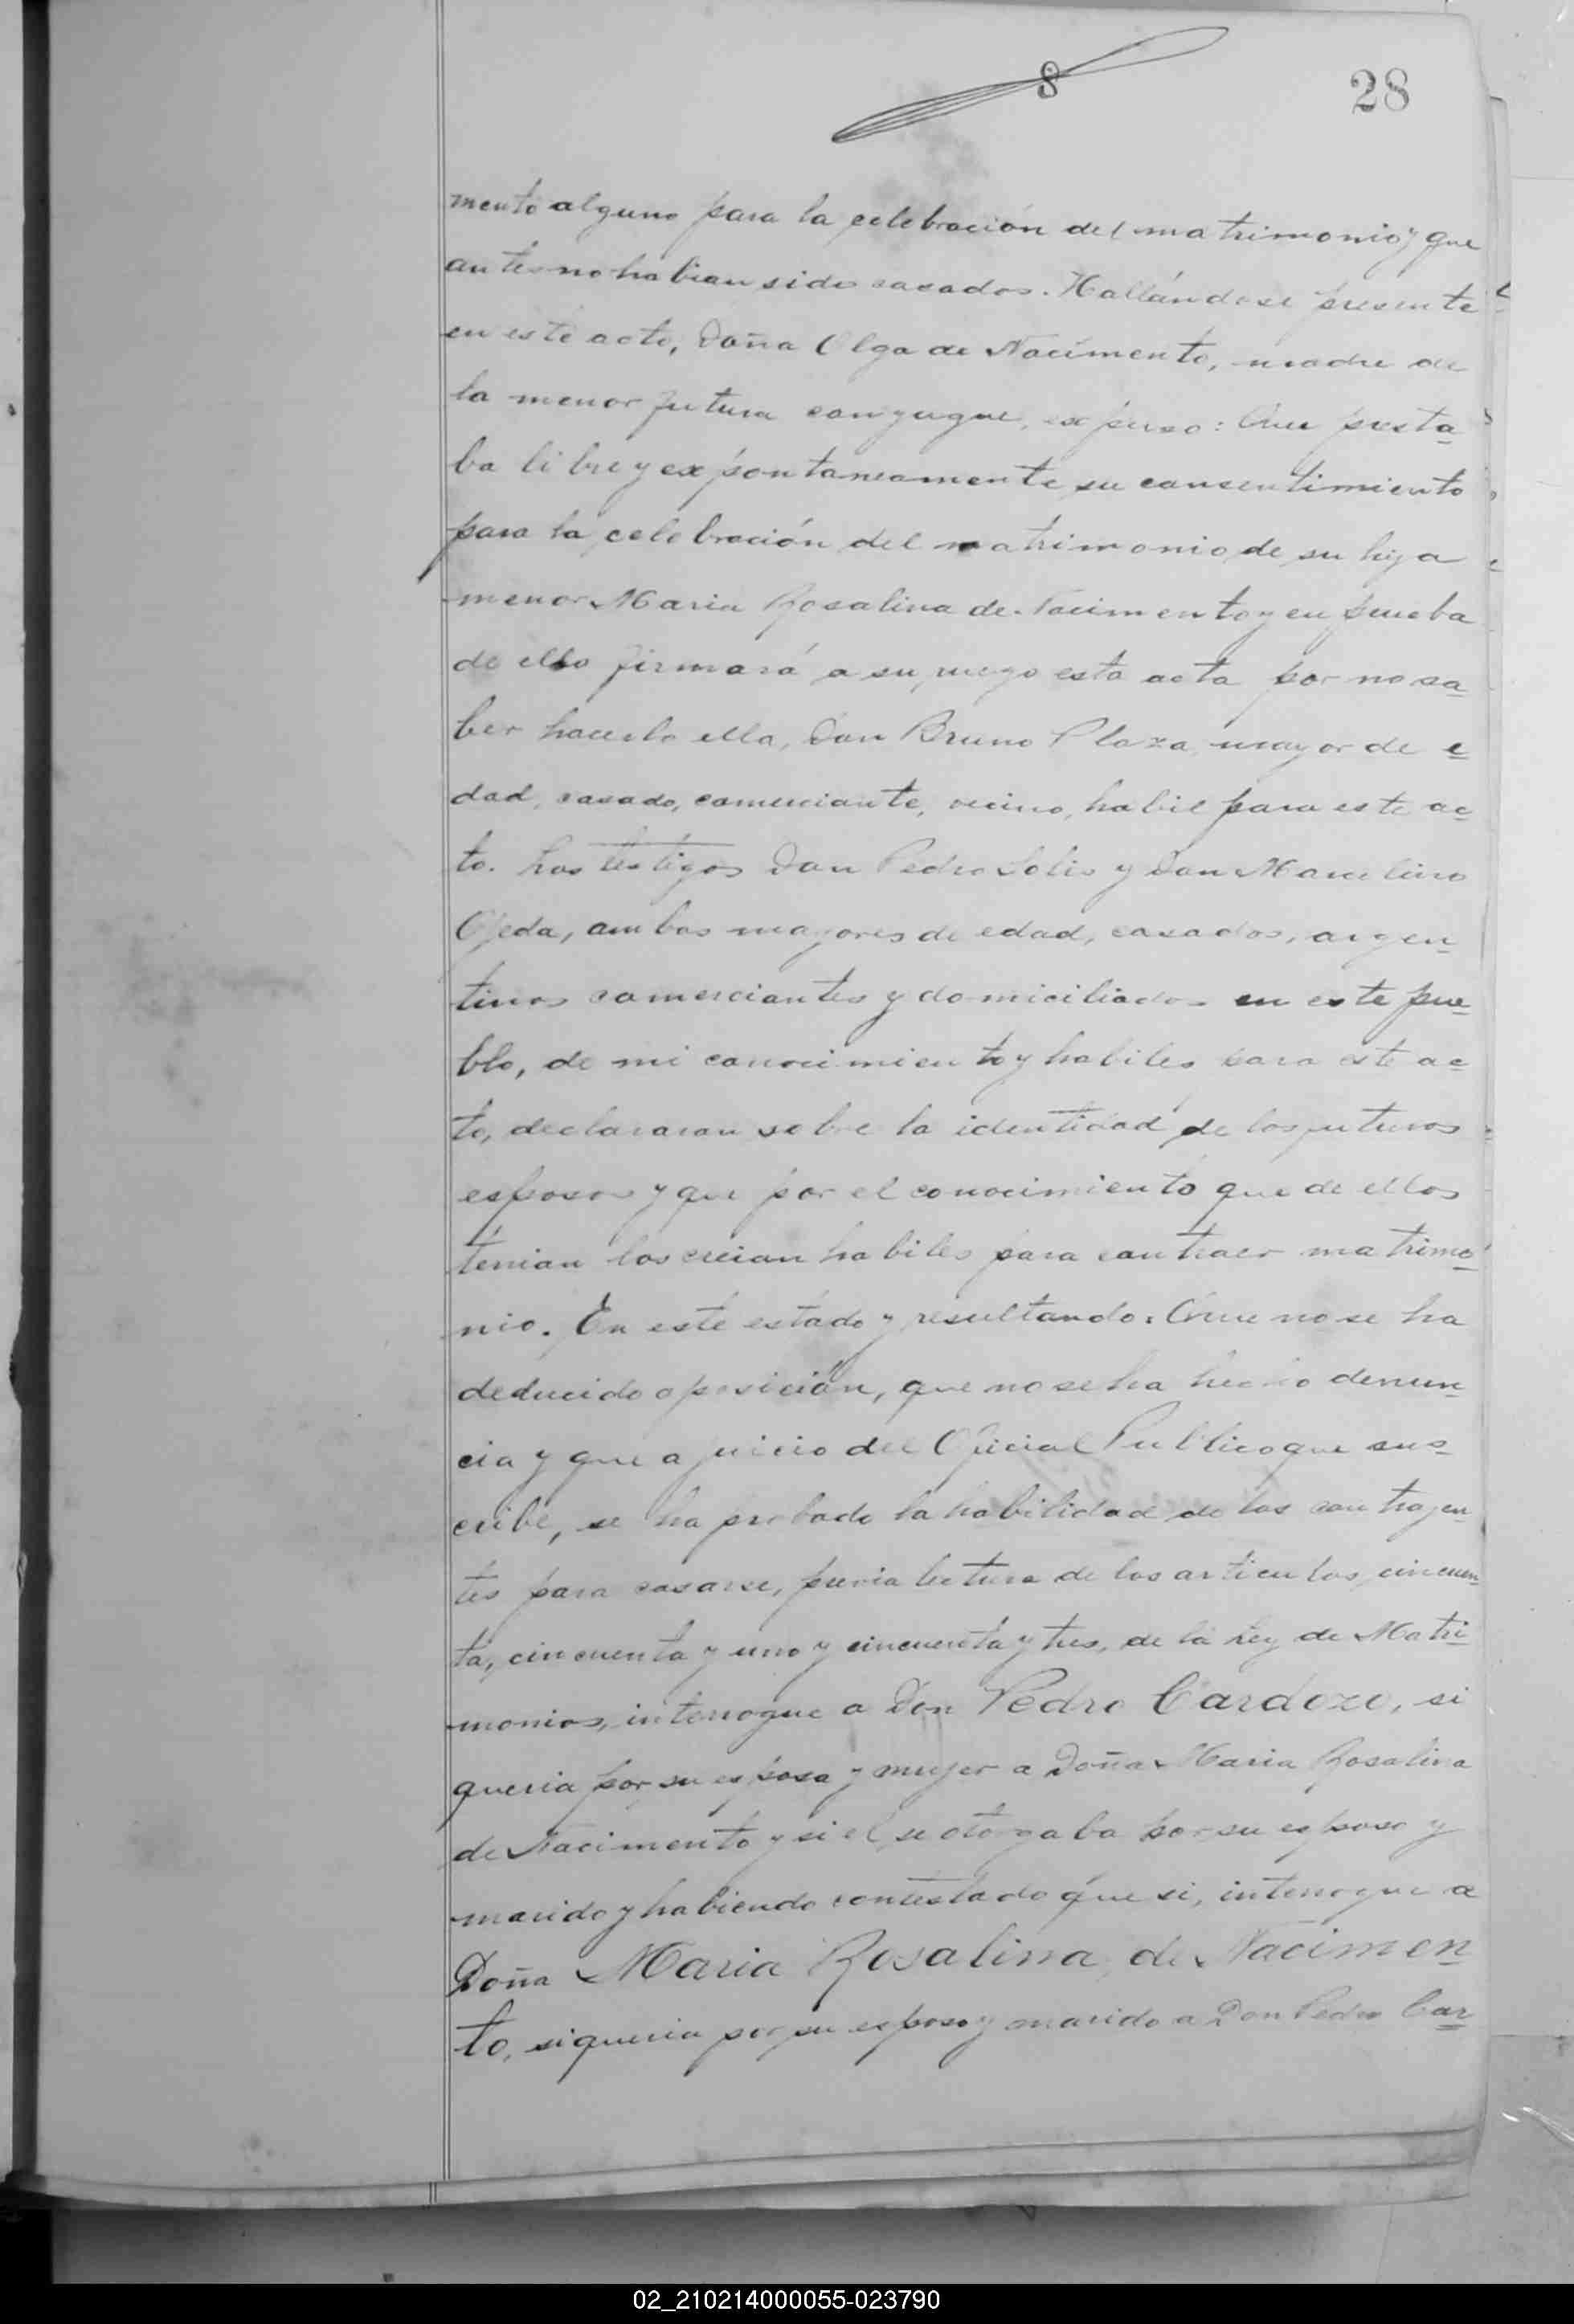 8
28
mento alguno para la celebración del matrimonio y que
antes no habian sido casados. Hallándose presente
en este acto, Doña Olga de Nacimento, madre de
la menor futura conyugue, expuso: Que presta
ba libre y expontaneamente su consentimiento
para la celebración del matrimonio de su hija
menor Maria Rosalina de Nacimento y en prueba
de ello firmará a su ruego esta acta por no sa
ber hacerlo ella, Don Bruno Plaza, mayor de e
dad, casado, comerciante, vecino, habil para este ac
to. Los testigos Don Pedro Solis y Don Marcelino
Ojeda, ambos mayores de edad, casados, argen
tinos comerciantes y domiciliados en este pue
blo, de mi conocimiento y habiles para este ac
to, declararan sobre la identidad de los futuros
esposos y que por el conocimiento que de ellos
tenian los creian habiles para contraer matrimo
nio. En este estado y resultando: Que no se ha
deducido oposición, que no se ha hecho denun
cia y que a juicio del Oficial Publico que sus
cribe, se ha probado la habilidad de los contrayen
tes para casarse, previa lectura de los articulos cincuen
ta, cincuenta y uno y cincuenta y tres, de la Ley de Matri
monios, interrogue a Don Pedro Cardozo, si
queria por su esposa y mujer a Doña Maria Rosalina
de Nacimento y si el se otorgaba por su esposo y
marido y habiendo contestado que si, interrogue a
Doña Maria Rosalina de Nacimen
to, si queria por su esposo y marido a Don Pedro Car
02_210214000055-023790